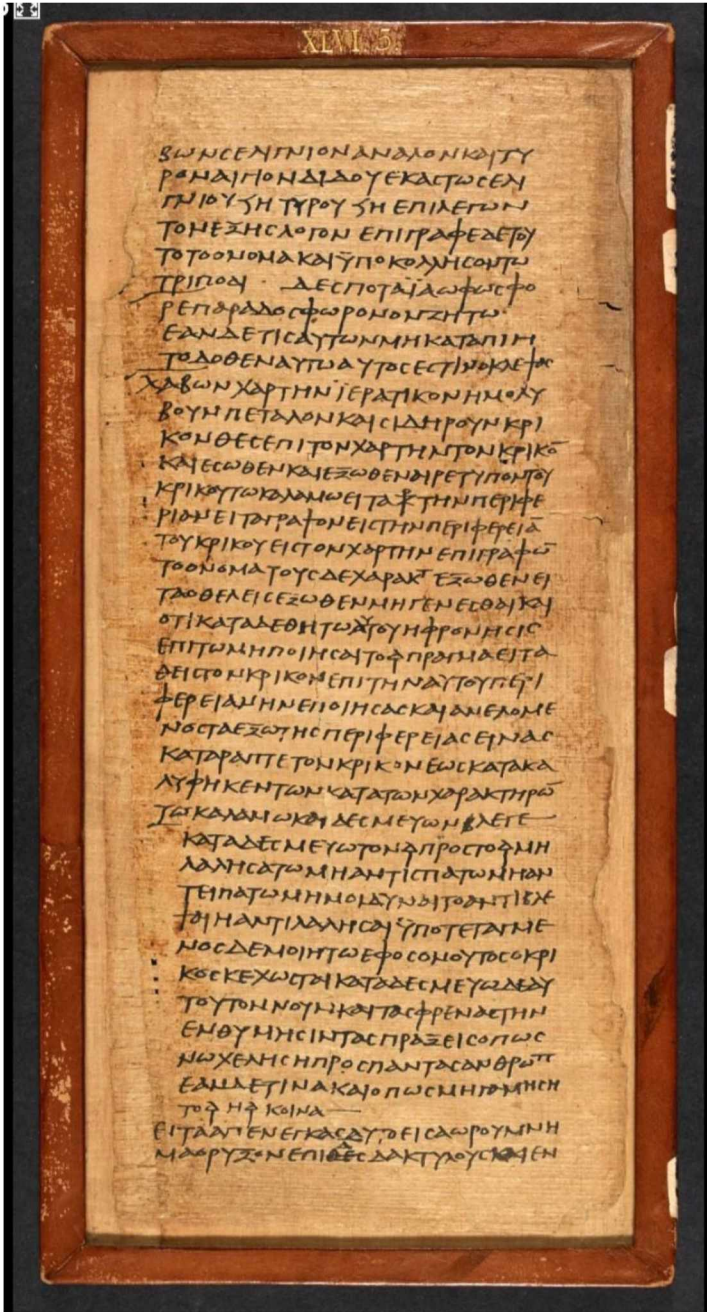 XLVI. 3.
ΒΩΝϹΕΛΙΓΝΙΟΝΑΝΑΛΟΝΚΑΙΤΥ
ΡΟΝΑΙΓΙΟΝΔΙΔΟΥΕΚΑϹΤΩϹΕΛΙ
ΓΝΙΟΥ ΤΥΡΟΥ ΕΠΙΛΕΓΩΝ
ΤΟΝΕΞΗϹΛΟΓΟΝ ΕΠΙΓΡΑΦΕΔΕΤΟΥ
ΤΟΤΟΟΝΟΜΑΚΑΙΫΠΟΚΟΛΛΗϹΟΝΤΩ
ΤΡΙΠΟΔΙ · ΔΕϹΠΟΤΑΪΑΩΦΩϹΦΟ
ΡΕΠΑΡΑΔΟϹΦΩΡΟΝΟΝΖΗΤΩ·
ΕΑΝΔΕΤΙϹΑΥΤΩΝΜΗΚΑΤΑΠΙΗ
ΤΟΔΟΘΕΝΑΥΤΩΑΥΤΟϹΕϹΤΙΝΟΚΛΕΨΑϹ
ΛΑΒΩΝΧΑΡΤΗΝΪΕΡΑΤΙΚΟΝΗΜΟΛΥ
ΒΟΥΝΠΕΤΑΛΟΝΚΑΙϹΙΔΗΡΟΥΝΚΡΙ
ΚΟΝΘΕϹΕΠΙΤΟΝΧΑΡΤΗΝΤΟΝΚΡΙΚΟ̅
ΚΑΙΕϹΩΘΕΝΚΑΙΕΞΩΘΕΝΑΙΡΕΤΥΠΟΝΤΟΥ
ΚΡΙΚΟΥΤΩΚΑΛΑΜΩΕΙΤΑ ΤΗΝΠΕΡΙΦΕ
ΡΙΑΝΕΙΤΑΓΡΑΨΟΝΕΙϹΤΗΝΠΕΡΙΦΕΡΕΙΑ̅
ΤΟΥΚΡΙΚΟΥΕΙϹΤΟΝΧΑΡΤΗΝΕΠΙΓΡΑΦΩ̅
ΤΟΟΝΟΜΑΤΟΥϹΔΕΧΑΡΑΚΤ ΕΞΩΘΕΝΕΙ
ΤΑΟΘΕΛΕΙϹΕΞΩΘΕΝΜΗΓΕΝΕϹΘΑΙΚΑΙ
ΟΤΙΚΑΤΑΔΕΘΗΤΩΑΥΤΟΥΗΦΡΟΝΗϹΙϹ
ΕΠΙΤΩΜΗΠΟΙΗϹΑΙΤΟ ΠΡΑΓΜΑΕΙΤΑ
ΘΕΙϹΤΟΝΚΡΙΚΟΝΕΠΙΤΗΝΑΥΤΟΥΠΕΡΙ
ΦΕΡΕΙΑΝΗΝΕΠΟΙΗϹΑϹΚΑΙΑΝΕΛΟΜΕ
ΝΟϹΤΑΕΞΩΤΗϹΠΕΡΙΦΕΡΕΙΑϹΕΙΝΑϹ
ΚΑΤΑΡΑΠΤΕΤΟΝΚΡΙΚΟΝΕΩϹΚΑΤΑΚΑ
ΛΥΦΗΚΕΝΤΩΝΚΑΤΑΤΩΝΧΑΡΑΚΤΗΡΩ̅
ΤΩΚΑΛΑΜΩΚΑΙΔΕϹΜΕΥΩΝΛΕΓΕ
ΚΑΤΑΔΕϹΜΕΥΩΤΟΝ ΠΡΟϹΤΟ ΜΗ
ΛΑΛΗϹΑΤΩΜΗΑΝΤΙϹΠΑΤΩΜΗΑΝ
ΤΕΙΠΑΤΩΜΗΜΟΙΔΥΝΑΙΤΟΑΝΤΙΒΛΕ
ΨΑΙΗΑΝΤΙΛΑΛΗϹΑΙΫΠΟΤΕΤΑΓΜΕ
ΝΟϹΔΕΜΟΙΗΤΩΕΦΟϹΟΝΟΥΤΟϹΟΚΡΙ
ΚΟϹΚΕΧΩϹΤΑΙΚΑΤΑΔΕϹΜΕΥΩΔΕΑΥ
ΤΟΥΤΟΝΝΟΥΝΚΑΙΤΑϹΦΡΕΝΑϹΤΗΝ
ΕΝΘΥΜΗϹΙΝΤΑϹΠΡΑΞΕΙϹΟΠΩϹ
ΝΩΧΕΛΗϹΗΠΡΟϹΠΑΝΤΑϹΑΝΘΡΩΠ
ΕΑΝΔΕΤΙΝΑΚΑΙΟΠΩϹΜΗΓΑΜΗϹΗ
ΚΟΙΝΑ
ΕΙΤΑΑΠΕΝΕΓΚΑϹΑΥΤΟΕΙϹΑΩΡΟΥΜΝΗ
ΜΑΟΡΥΞΟΝΕΠΙ ΔΑΚΤΥΛΟΥϹ ΕΝ